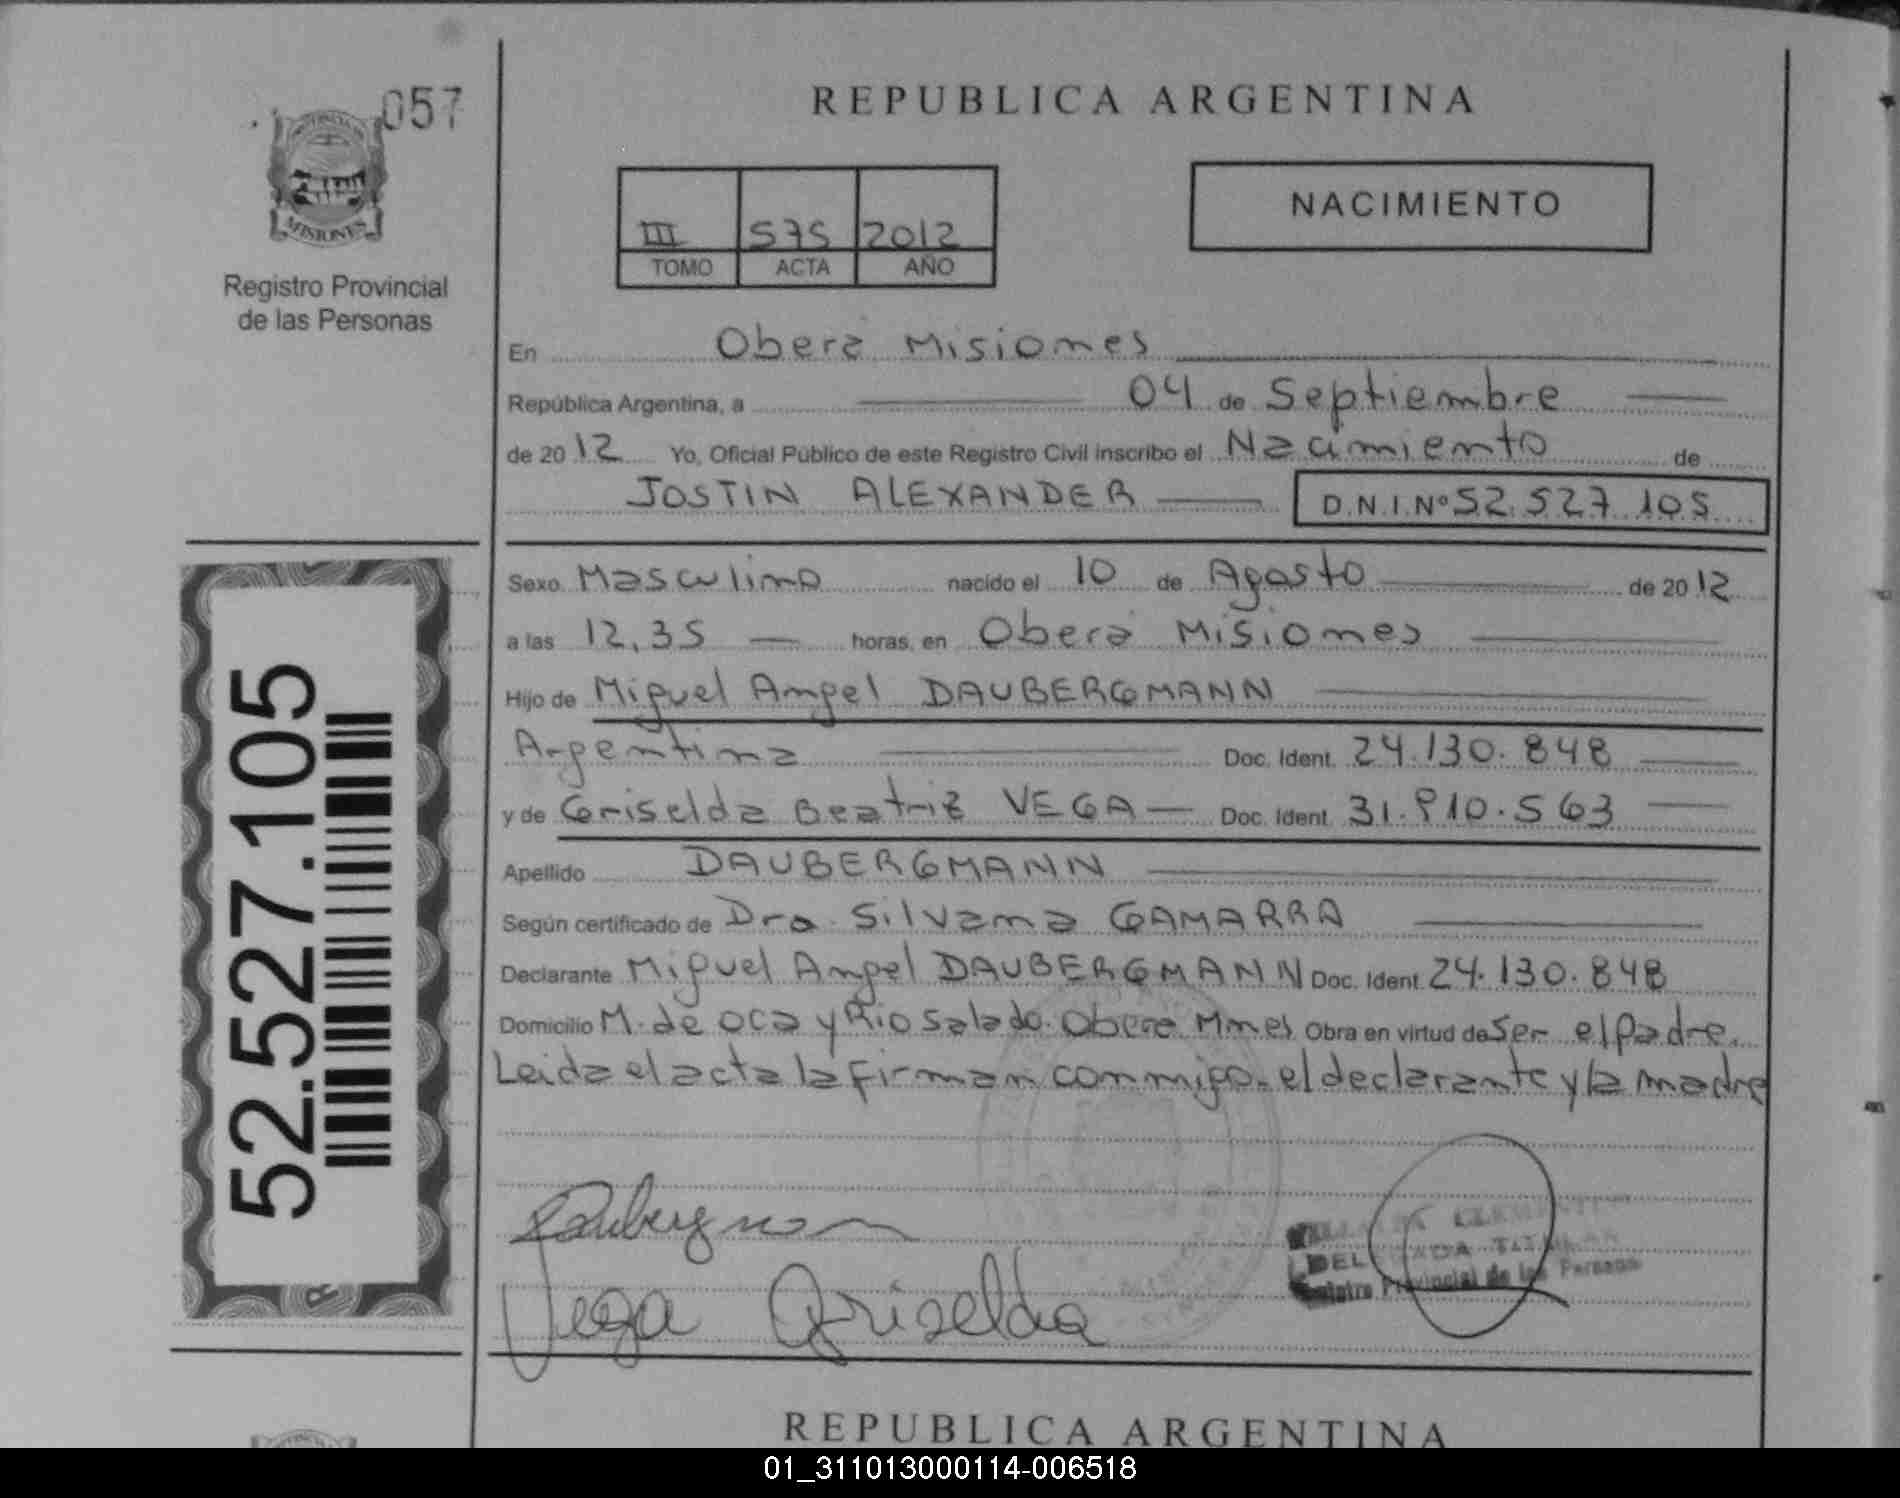 057
MISIONES
Registro Provincial
de las Personas
REPUBLICA ARGENTINA
III 575 2012
TOMO ACTA AÑO
NACIMIENTO
En Oberá Misiones
República Argentina, a 04 de Septiembre
de 2012 Yo, Oficial Público de este Registro Civil inscribo el Nacimiento de
JOSTIN ALEXANDER D.N.I.Nº 52.527.105
Sexo Masculino nacido el 10 de Agosto de 2012
a las 12,35 horas, en Oberá Misiones
Hijo de Miguel Angel DAUBERGMANN
Argentina Doc. Ident. 24.130.848
y de Griselda Beatriz VEGA Doc. Ident. 31.910.563
Apellido DAUBERGMANN
Según certificado de Dra. Silvana GAMARRA
Declarante Miguel Angel DAUBERGMANN Doc. Ident. 24.130.848
Domicilio M. de oca y Rio Salado. Oberá Mnes Obra en virtud de Ser el padre.
Leida el acta la firman conmigo. el declarante y la madre
52.527.105
Daubergman
Vega Griselda
TITULAR
Registro Provincial de las Personas
REPUBLICA ARGENTINA
01_311013000114-006518